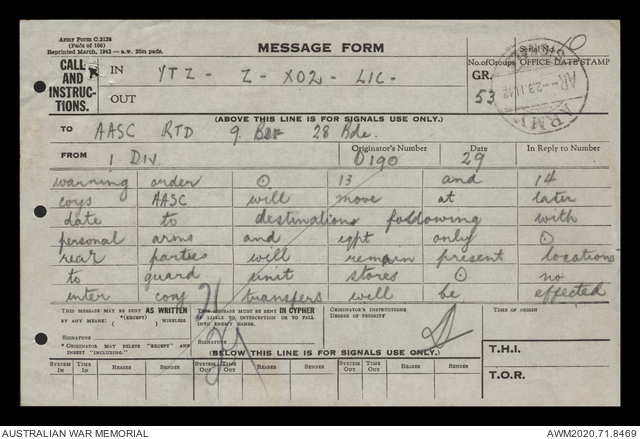 Army Form C.2128
(Pads of 100)
Reprinted March, 1942 — a.w. 25m pads.
MESSAGE FORM
Serial No. 10
CALL AND INSTRUCTIONS.
IN YTZ - Z - XO2 - LIC -
OUT
No. of Groups
GR.
53
OFFICE DATE STAMP
(ABOVE THIS LINE IS FOR SIGNALS USE ONLY.)
TO AASC RTD 9 28 Bde.
FROM 1 DIV
Originator's Number 0190
Date 29
In Reply to Number
warning order ⊙ 13 and 14
coys AASC will move at later
date to destinations following with
personal arms and eqpt only ⊙
rear parties will remain present locations
to guard unit stores ⊙ no
inter coy transfers will be effected
THIS MESSAGE MAY BE SENT AS WRITTEN
BY ANY MEANS. *(EXCEPT) ( ) WIRELESS
SIGNATURE
* ORIGINATOR MAY DELETE "EXCEPT" AND INSERT "INCLUDING."
THIS MESSAGE MUST BE SENT IN CYPHER
IF LIABLE TO INTERCEPTION OR TO FALL INTO ENEMY HANDS.
SIGNATURE
ORIGINATOR'S INSTRUCTIONS
DEGREE OF PRIORITY
TIME OF ORIGIN
(BELOW THIS LINE IS FOR SIGNALS USE ONLY.)
T.H.I.
T.O.R.
SYSTEM IN TIME IN READER SENDER SYSTEM OUT TIME OUT READER SENDER SYSTEM OUT TIME OUT READER SENDER
AUSTRALIAN WAR MEMORIAL
AWM2020.71.8469